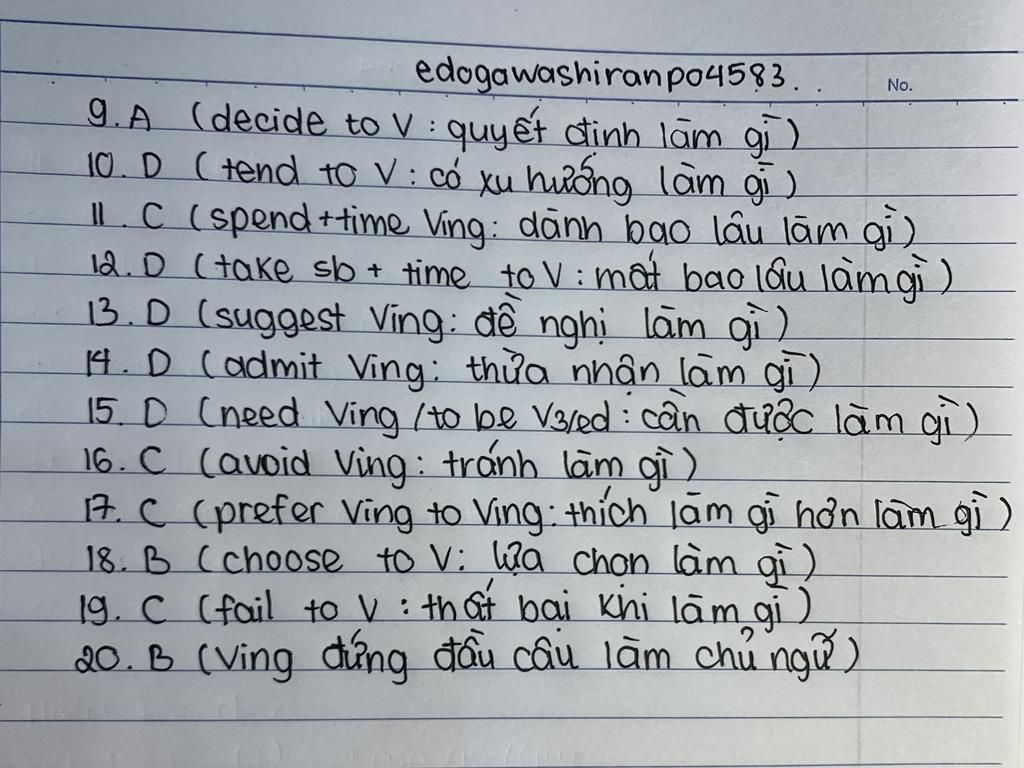 edogawashiranpo4583..
No.
9. A (decide to V : quyết định làm gì)
10. D (tend to V : có xu hướng làm gì)
11. C (spend+time Ving : dành bao lâu làm gì)
12. D (take sb + time to V : mất bao lâu làm gì)
13. D (suggest Ving : đề nghị làm gì)
14. D (admit Ving : thừa nhận làm gì)
15. D (need Ving /to be V3/ed : cần được làm gì)
16. C (avoid Ving : tránh làm gì)
17. C (prefer Ving to Ving : thích làm gì hơn làm gì)
18. B (choose to V : lựa chọn làm gì)
19. C (fail to V : thất bại khi làm gì)
20. B (Ving đứng đầu câu làm chủ ngữ)